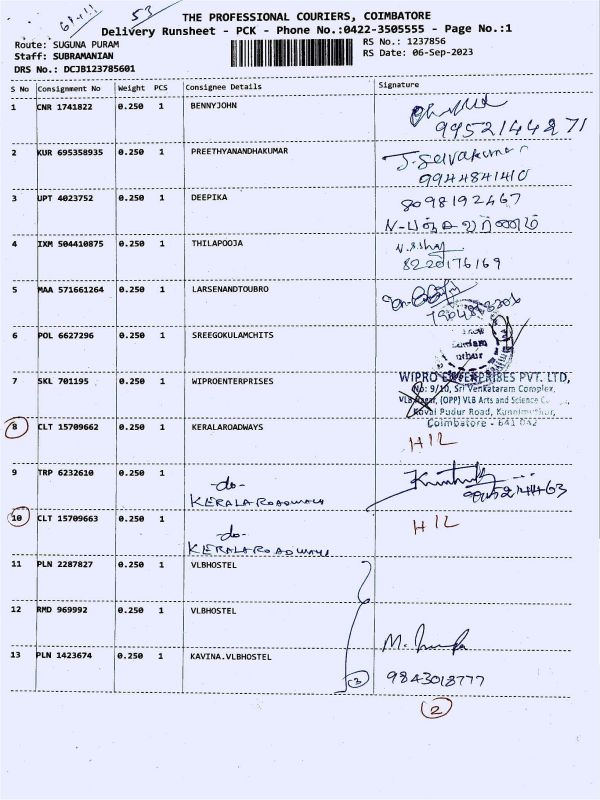 53
THE PROFESSIONAL COURIERS, COIMBATORE
Delivery Runsheet - PCK - Phone No.:0422-3505555 - Page No.:1
Route: SUGUNA PURAM
RS No.: 1237856
Staff: SUBRAMANIAN
RS Date: 06-Sep-2023
DRS No.: DCJB123785601
S No Consignment No Weight PCS Consignee Details Signature
1 CNR 1741822 0.250 1 BENNYJOHN
9952144271
2 KUR 695358935 0.250 1 PREETHYANANDHAKUMAR J. Selvakumar
9944841410
3 UPT 4023752 0.250 1 DEEPIKA 8098192467
4 IXM 504410875 0.250 1 THILAPOOJA
8220176169
5 MAA 571661264 0.250 1 LARSENANDTOUBRO
6 POL 6627296 0.250 1 SREEGOKULAMCHITS
7 SKL 701195 0.250 1 WIPROENTERPRISES WIPRO ENTERPRISES PVT. LTD,
No: 9/10, Sri Venkataram Complex,
VLB Nagar, (OPP) VLB Arts and Science
Kovai Pudur Road, Kunnimuthur,
Coimbatore - 641 042
8 CLT 15709662 0.250 1 KERALAROADWAYS HIL
9 TRP 6232610 0.250 1 -do-
KERALAROADWAYS
9952144463
10 CLT 15709663 0.250 1 -do- HIL
KERALAROADWAYS
11 PLN 2287827 0.250 1 VLBHOSTEL
12 RMD 969992 0.250 1 VLBHOSTEL
13 PLN 1423674 0.250 1 KAVINA.VLBHOSTEL
3 9843018777
2